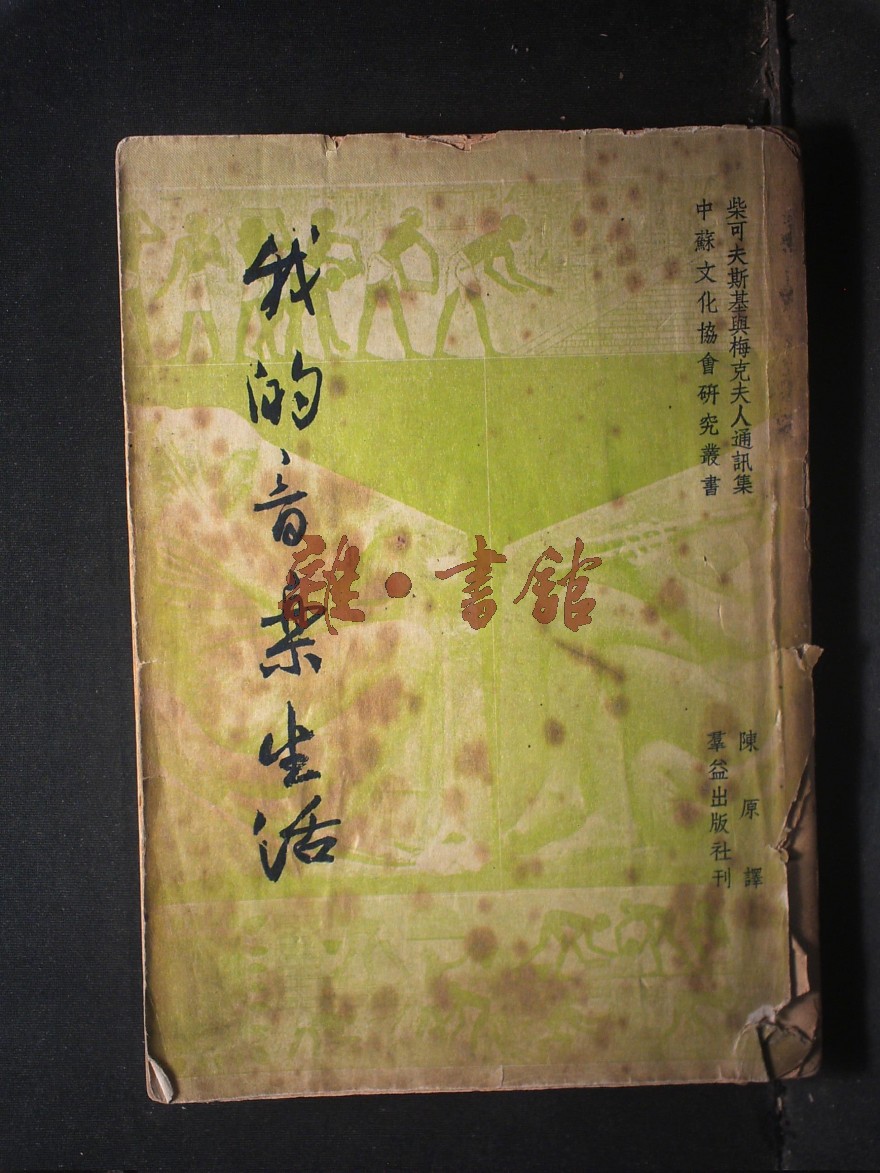 柴可夫斯基與梅克夫人通訊集
中蘇文化協會研究叢書
我的音樂生活
陳原譯
羣益出版社刊
雜·書館